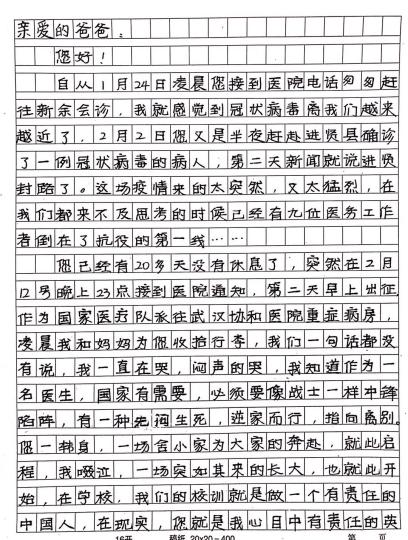 亲爱的爸爸:
您好!
自从1月24日凌晨您接到医院电话匆匆赶
往新余会诊,我就感觉到冠状病毒离我们越来
越近了,2月2日您又是半夜赶赴进贤县确诊
了一例冠状病毒的病人,第二天新闻就说进贤
封路了。这场疫情来的太突然,又太猛烈,在
我们都来不及思考的时候已经有九位医务工作
者倒在了抗役的第一线……
您已经有20多天没有休息了,突然在2月
12号晚上23点接到医院通知,第二天早上出征,
作为国家医疗队承往武汉协和医院重症病房,
凌晨我和妈妈为您收拾行李,我们一句话都没
有说,我一直在哭,闷声的哭,我知道作为一
名医生,国家有需要,必须要像战士一样冲锋
陷阵,有一种先河生死,逆家而行,指向离别。
您一转身,一场舍小家为大家的奔赴,就此启
程,我啜泣,一场突如其来的长大,也就此开
始,在学校,我们的校训就是做一个有责任的
中国人,在现实,您就是我心目中有责任的英
16开 稿纸 20×20=400 第 页